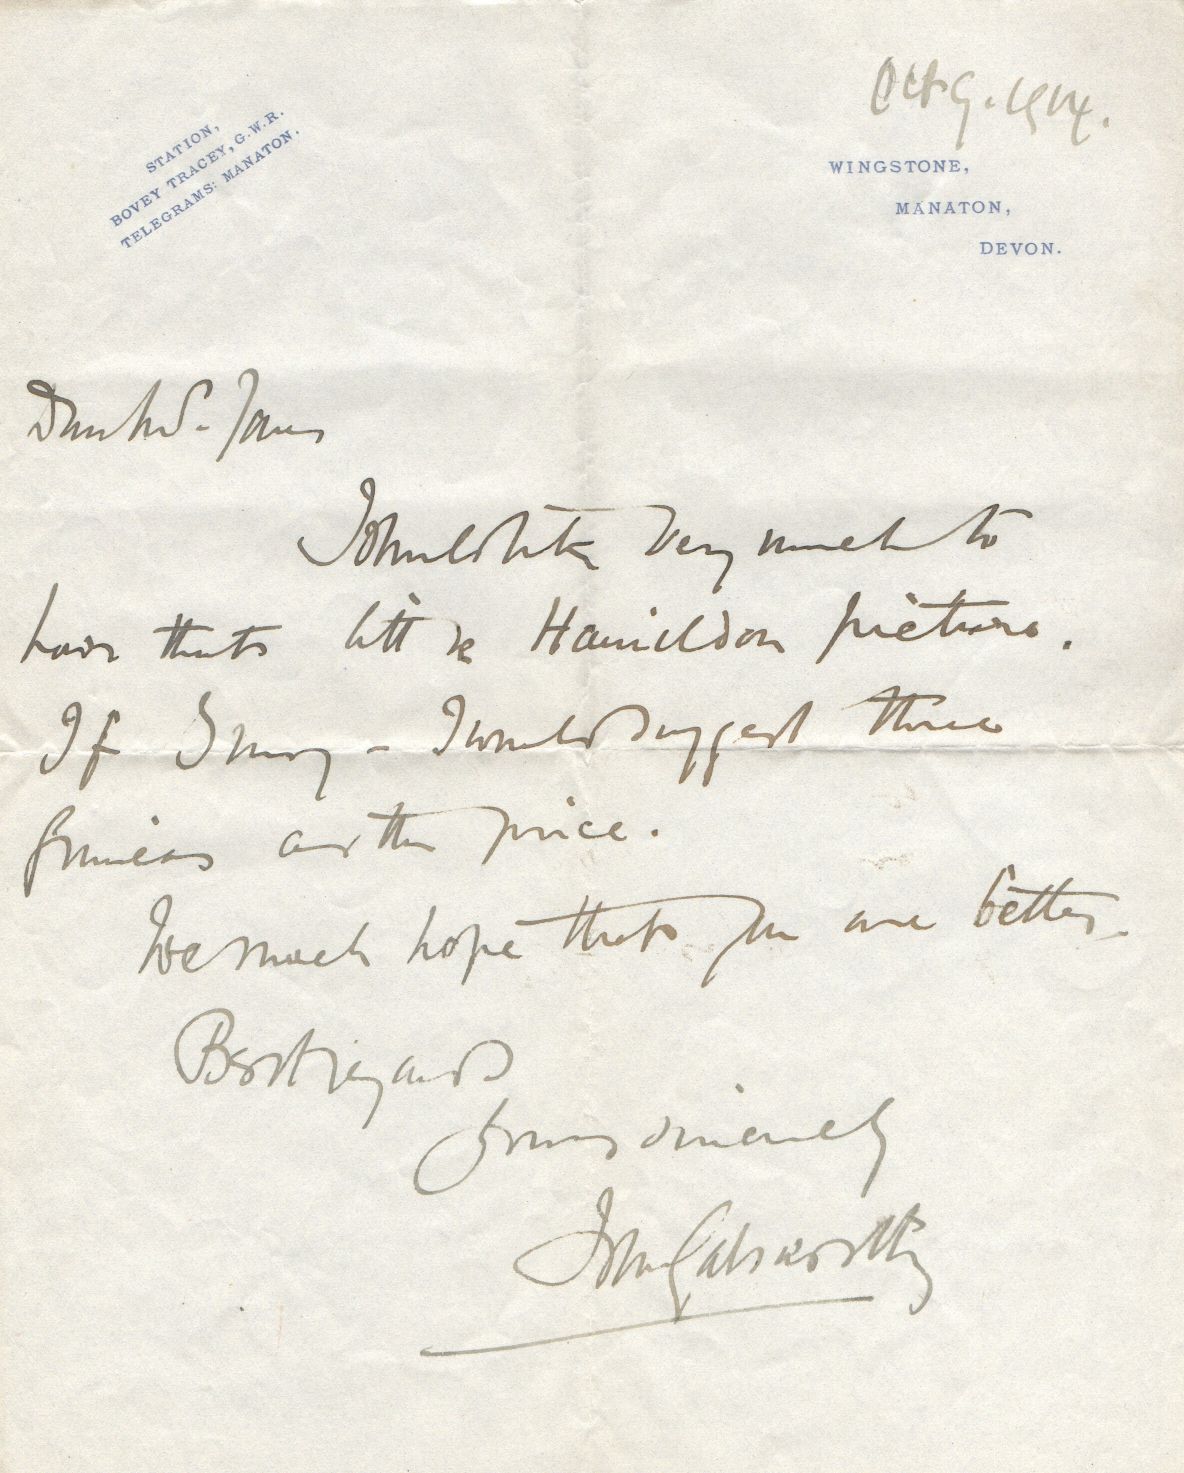 Oct 9. 1914.
STATION,
BOVEY TRACEY, G.W.R.
TELEGRAMS: MANATON.
WINGSTONE,
MANATON,
DEVON.
Dear
I should like very much to
have that little Hameldon picture.
If I may – I would suggest three
guineas as the price.
We much hope that you are better.
Best regards
Yours sincerely
John Galsworthy